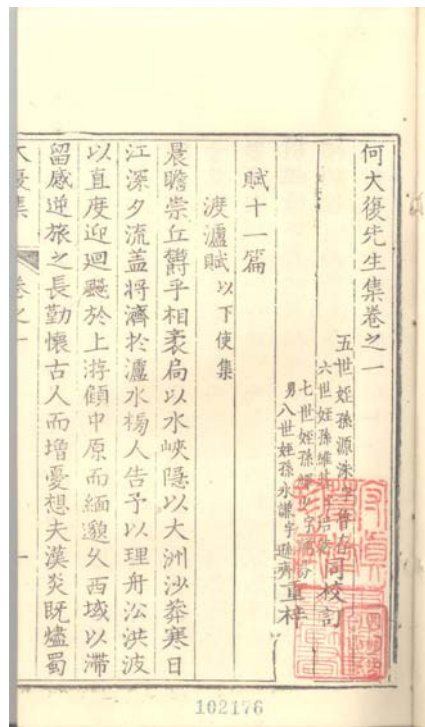 何大復先生集卷之一
五世姪孫源洙字
六世姪孫維
同校訂
七世姪孫
男八世姪孫永謙字遜齊
重梓
賦十一篇
渡瀘賦以下使集
晨瞻崇丘鬱乎相袤局以水峽隱以大洲沙莽寒日
江深夕流盖將濟於瀘水榜人告予以理舟㳂洪波
以直度迎迴颷於上游顧中原而緬邈久西域以滯
留感逆旅之長勤懷古人而增憂想夫漢炎既燼蜀
大復集 卷之一 一
102176